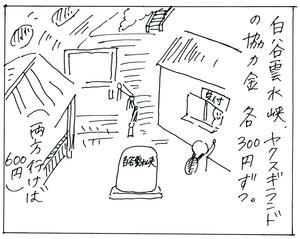 白谷雲水峡、ヤクスギランド
の協力金 各300円ずつ。
受付
白谷雲水峡
(両方行けば
600円)